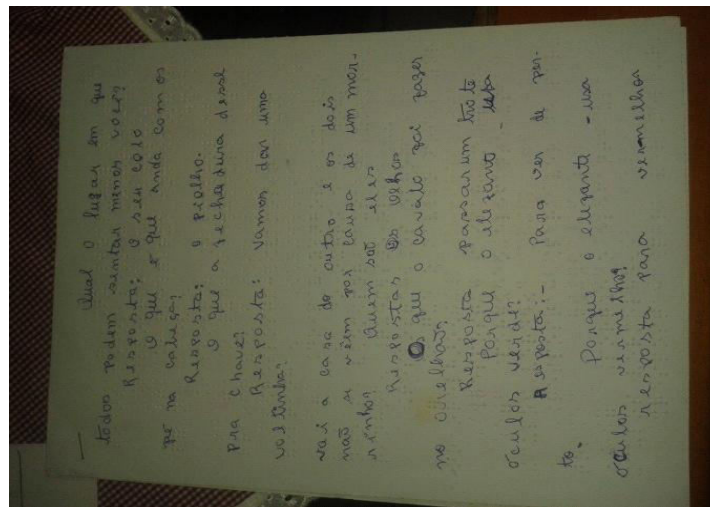 Qual o lugar em que
todos podem sentar menos você?
Resposta: O seu colo
O que e que anda com os
pé na cabeça?
Resposta: o piolho.
O que a fechadura disse
pra chave?
Resposta: Vamos dar uma
voltinha?
vai a casa do outro e os dois
não se vêem por causa de um mor-
rinho? Quem são eles
Respostas os olhos
O que o cavalo foi fazer
no orelhão?
Resposta passar um trote
Porque o elefante usa
óculos verde?
Resposta:- Para ver de per-
to.
Porque o elefante - usa
óculos vermelho?
resposta para vermelhor